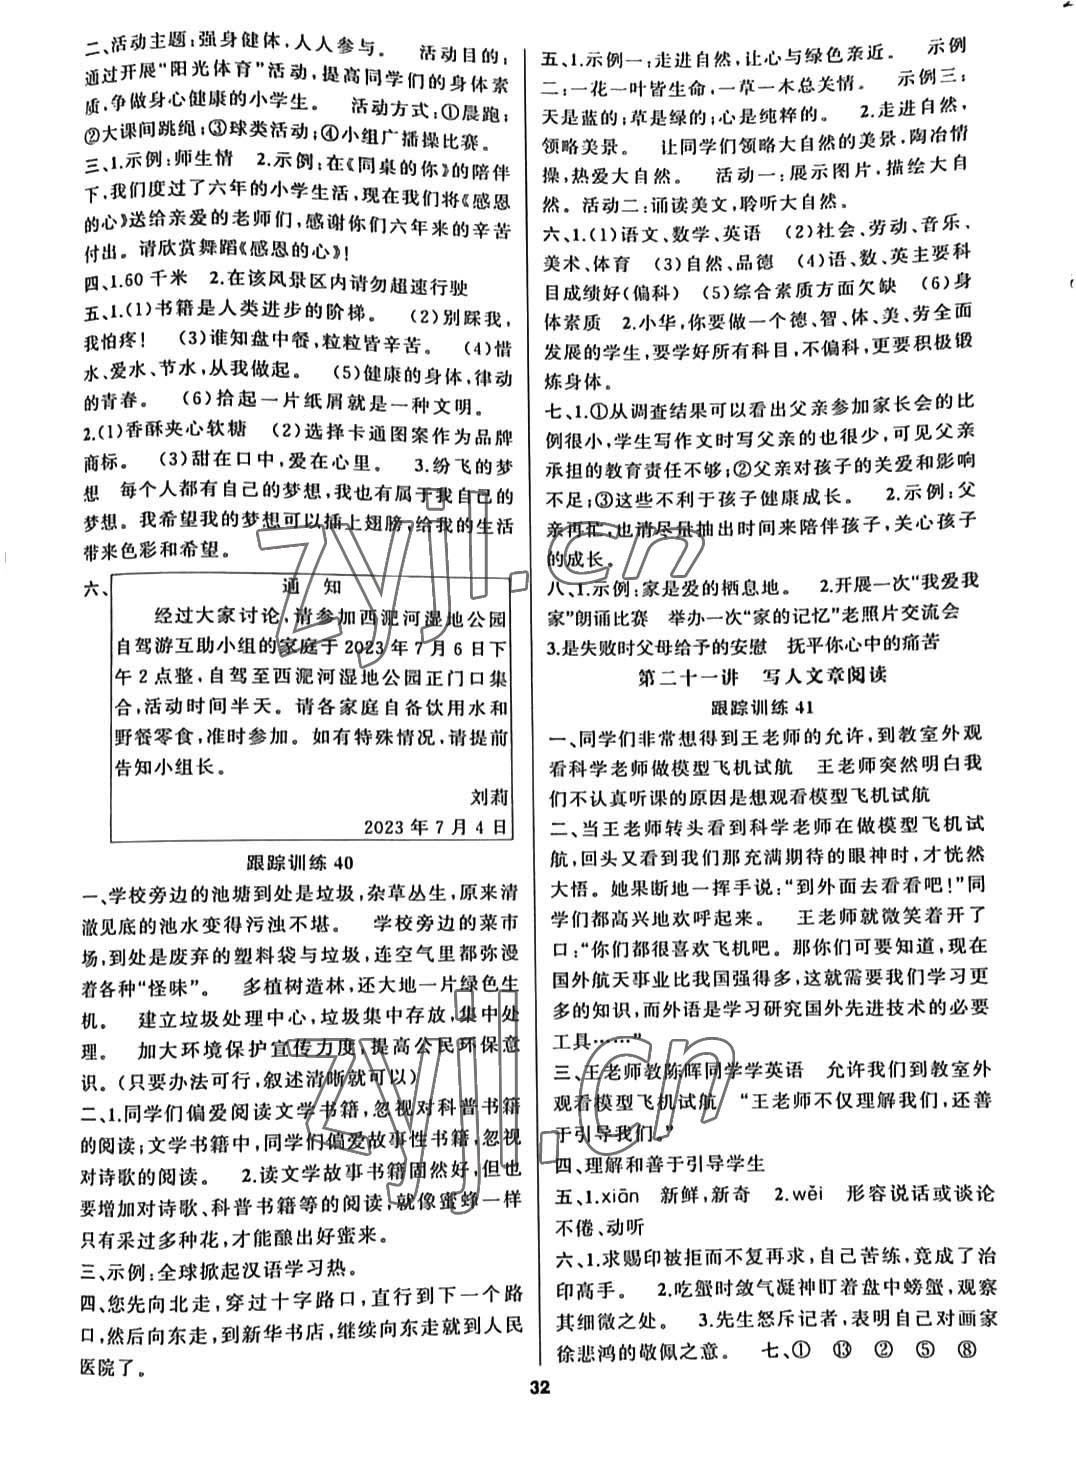 二、活动主题:强身健体,人人参与。　活动目的:
通过开展“阳光体育”活动,提高同学们的身体素
质,争做身心健康的小学生。　活动方式:①晨跑;
②大课间跳绳;③球类活动;④小组广播操比赛。
三、1.示例:师生情　2.示例:在《同桌的你》的陪伴
下,我们度过了六年的小学生活,现在我们将《感恩
的心》送给亲爱的老师们,感谢你们六年来的辛苦
付出。请欣赏舞蹈《感恩的心》!
四、1.60 千米　2.在该风景区内请勿超速行驶
五、1.(1)书籍是人类进步的阶梯。　(2)别踩我,
我怕疼!　(3)谁知盘中餐,粒粒皆辛苦。　(4)惜
水、爱水、节水,从我做起。　(5)健康的身体,律动
的青春。　(6)拾起一片纸屑就是一种文明。
2.(1)香酥夹心软糖　(2)选择卡通图案作为品牌
商标。　(3)甜在口中,爱在心里。　3.纷飞的梦
想　每个人都有自己的梦想,我也有属于我自己的
梦想。我希望我的梦想可以插上翅膀,给我的生活
带来色彩和希望。
六、
通　知
经过大家讨论,请参加西淝河湿地公园
自驾游互助小组的家庭于 2023 年 7 月 6 日下
午 2 点整,自驾至西淝河湿地公园正门口集
合,活动时间半天。请各家庭自备饮用水和
野餐零食,准时参加。如有特殊情况,请提前
告知小组长。
刘莉
2023 年 7 月 4 日
跟踪训练 40
一、学校旁边的池塘到处是垃圾,杂草丛生,原来清
澈见底的池水变得污浊不堪。　学校旁边的菜市
场,到处是废弃的塑料袋与垃圾,连空气里都弥漫
着各种“怪味”。　多植树造林,还大地一片绿色生
机。　建立垃圾处理中心,垃圾集中存放,集中处
理。　加大环境保护宣传力度,提高公民环保意
识。(只要办法可行,叙述清晰就可以)
二、1.同学们偏爱阅读文学书籍,忽视对科普书籍
的阅读;文学书籍中,同学们偏爱故事性书籍,忽视
对诗歌的阅读。　2.读文学故事书籍固然好,但也
要增加对诗歌、科普书籍等的阅读,就像蜜蜂一样
只有采过多种花,才能酿出好蜜来。
三、示例:全球掀起汉语学习热。
四、您先向北走,穿过十字路口,直行到下一个路
口,然后向东走,到新华书店,继续向东走就到人民
医院了。
五、1.示例一:走进自然,让心与绿色亲近。　示例
二:一花一叶皆生命,一草一木总关情。　示例三:
天是蓝的;草是绿的;心是纯粹的。　2.走进自然,
领略美景。　让同学们领略大自然的美景,陶冶情
操,热爱大自然。　活动一:展示图片,描绘大自
然。活动二:诵读美文,聆听大自然。
六、1.(1)语文、数学、英语　(2)社会、劳动、音乐、
美术、体育　(3)自然、品德　(4)语、数、英主要科
目成绩好(偏科)　(5)综合素质方面欠缺　(6)身
体素质　2.小华,你要做一个德、智、体、美、劳全面
发展的学生,要学好所有科目,不偏科,更要积极锻
炼身体。
七、1.①从调查结果可以看出父亲参加家长会的比
例很小,学生写作文时写父亲的也很少,可见父亲
承担的教育责任不够;②父亲对孩子的关爱和影响
不足;③这些不利于孩子健康成长。　2.示例:父
亲再忙,也请尽量抽出时间来陪伴孩子,关心孩子
的成长。
八、1.示例:家是爱的栖息地。　2.开展一次“我爱我
家”朗诵比赛　举办一次“家的记忆”老照片交流会
3.是失败时父母给予的安慰　抚平你心中的痛苦
第二十一讲　写人文章阅读
跟踪训练 41
一、同学们非常想得到王老师的允许,到教室外观
看科学老师做模型飞机试航　王老师突然明白我
们不认真听课的原因是想观看模型飞机试航
二、当王老师转头看到科学老师在做模型飞机试
航,回头又看到我们那充满期待的眼神时,才恍然
大悟。她果断地一挥手说:“到外面去看看吧!”同
学们都高兴地欢呼起来。　王老师就微笑着开了
口:“你们都很喜欢飞机吧。那你们可要知道,现在
国外航天事业比我国强得多,这就需要我们学习更
多的知识,而外语是学习研究国外先进技术的必要
工具……”
三、王老师教陈晖同学学英语　允许我们到教室外
观看模型飞机试航　“王老师不仅理解我们,还善
于引导我们。”
四、理解和善于引导学生
五、1.xiān　新鲜,新奇　2.wěi　形容说话或谈论
不倦、动听
六、1.求赐印被拒而不复再求,自己苦练,竟成了治
印高手。　2.吃蟹时敛气凝神盯着盘中螃蟹,观察
其细微之处。　3.先生怒斥记者,表明自己对画家
徐悲鸿的敬佩之意。　七、①　⑬　②　⑤　⑧
32
zyjl.cn
zyjl.cn